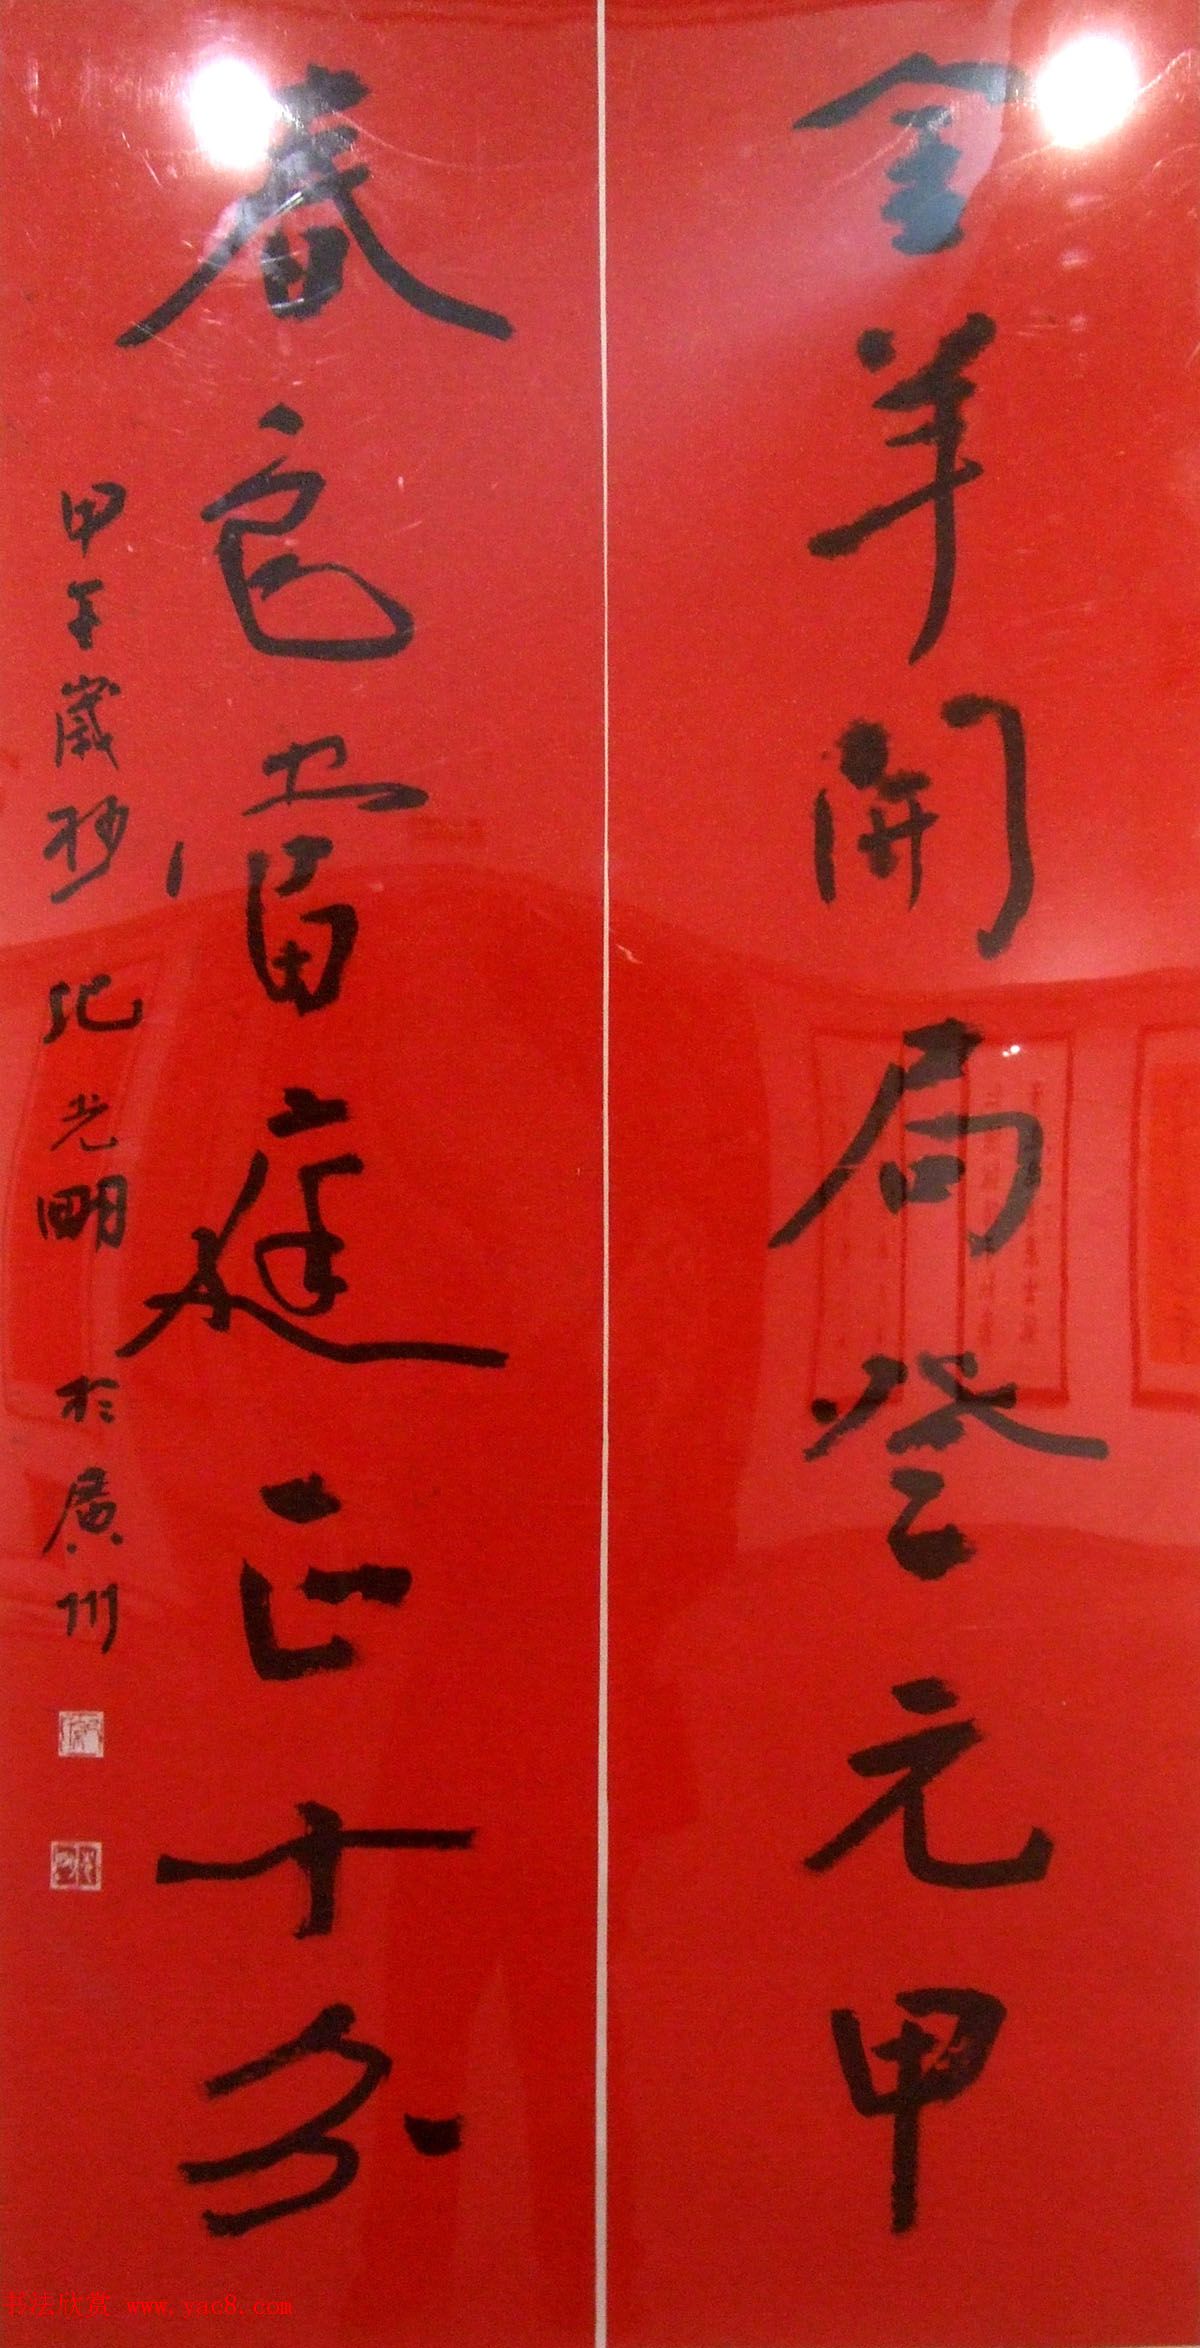 金羊開局登元甲
春色當庭正十分
甲午歲杪紀光明於廣州
书法欣赏 www.yac8.com